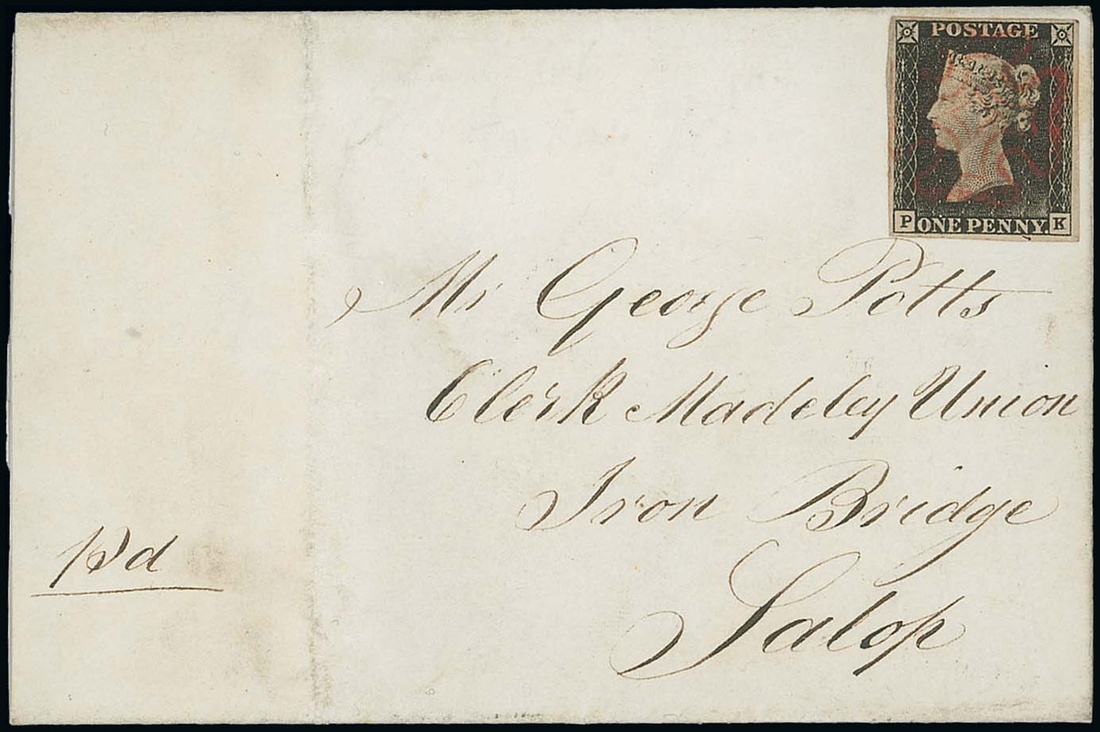 POSTAGE
P ONE PENNY K
Mr George Potts
Clerk Madeley Union
Iron Bridge
Salop
pd